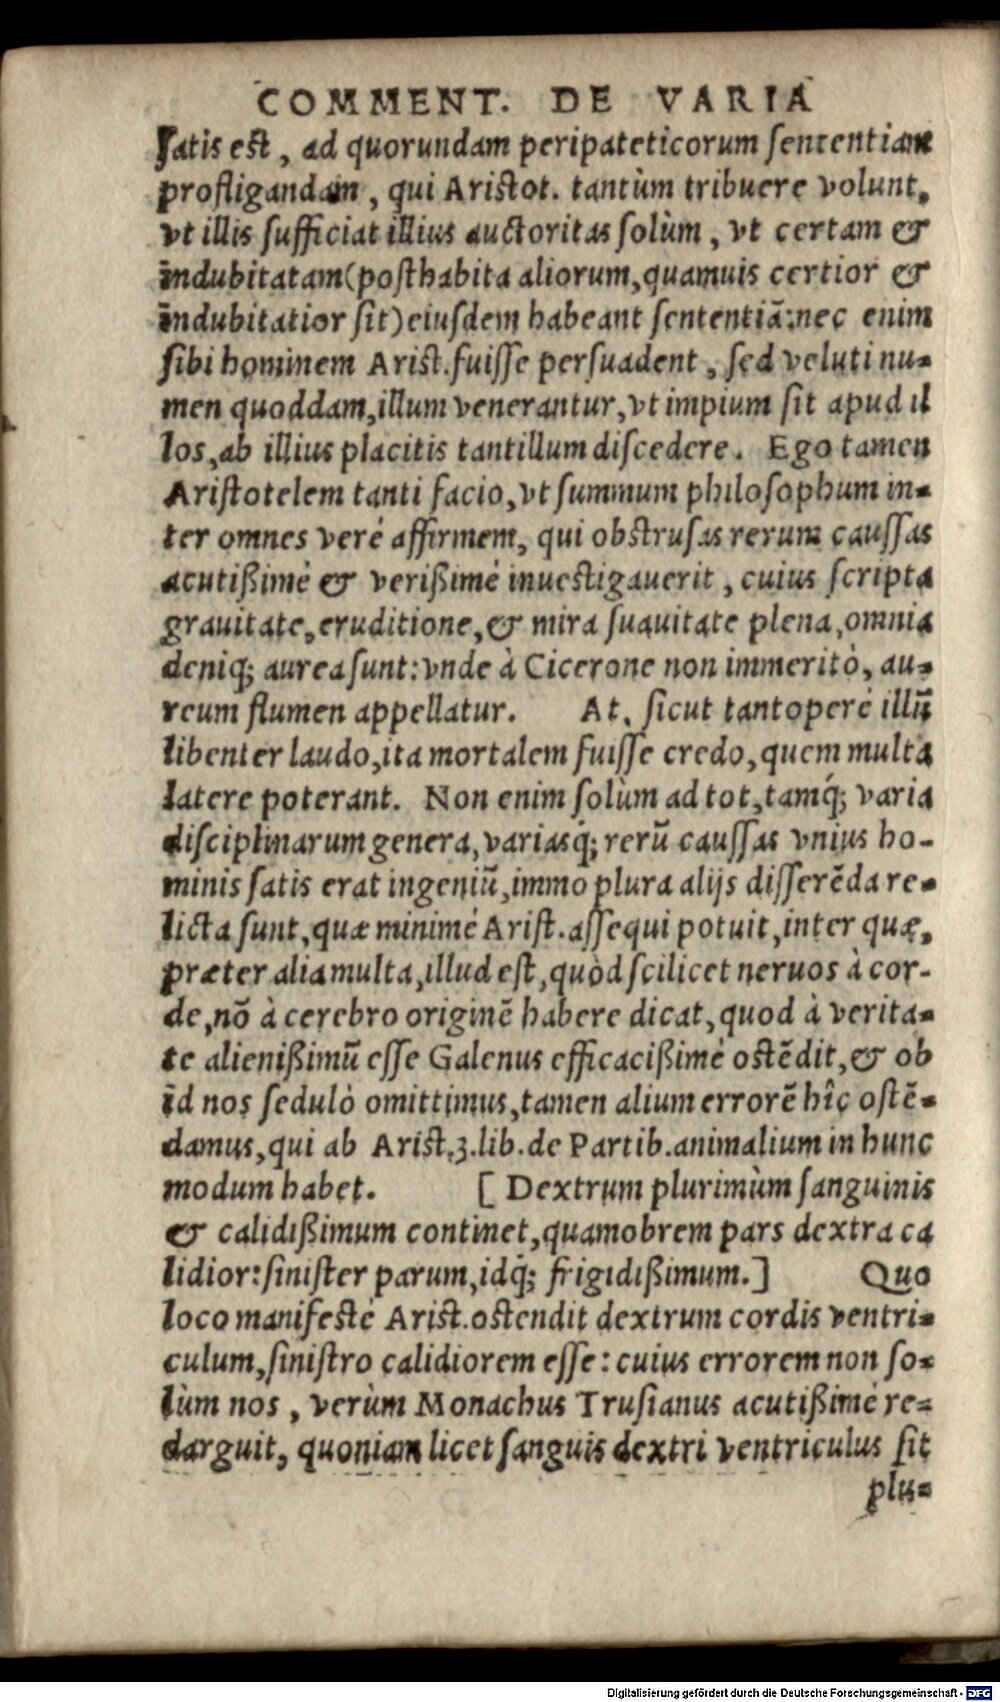 COMMENT. DE VARIA
ſatis eſt, ad quorundam peripateticorum ſententiam
profligandam, qui Ariſtot. tantùm tribuere volunt,
vt illis ſufficiat illius auctoritas ſolùm, vt certam &
indubitatam (poſthabita aliorum, quamuis certior &
indubitatior ſit) eiuſdem habeant ſententiã: nec enim
ſibi hominem Ariſt. fuiſſe perſuadent, ſed veluti nu-
men quoddam, illum venerantur, vt impium ſit apud il
los, ab illius placitis tantillum diſcedere. Ego tamen
Ariſtotelem tanti facio, vt ſummum philoſophum in-
ter omnes veré affirmem, qui obſtruſas rerum cauſſas
acutißimé & verißimé inueſtigauerit, cuius ſcripta
grauitate, eruditione, & mira ſuauitate plena, omnia
deniq; aurea ſunt: vnde à Cicerone non immeritò, au-
reum flumen appellatur. At, ſicut tantoperé illũ
libenter laudo, ita mortalem fuiſſe credo, quem multa
latere poterant. Non enim ſolùm ad tot, tamq́; varia
diſciplinarum genera, variasq́; rerũ cauſſas vnius ho-
minis ſatis erat ingeniũ, immo plura alijs differẽda re-
licta ſunt, quæ minimé Ariſt. aſſequi potuit, inter quæ,
præter alia multa, illud eſt, quòd ſcilicet neruos à cor-
de, nõ à cerebro originẽ habere dicat, quod à verita-
te alienißimũ eſſe Galenus efficacißimé oſtẽdit, & ob
id nos ſedulò omittimus, tamen alium errorẽ hîc oſtẽ-
damus, qui ab Ariſt. 3. lib. de Partib. animalium in hunc
modum habet. [ Dextrum plurimùm ſanguinis
& calidißimum continet, quamobrem pars dextra ca
lidior: ſiniſter parum, idq́; frigidißimum. ] Quo
loco manifeſté Ariſt. oſtendit dextrum cordis ventri-
culum, ſiniſtro calidiorem eſſe: cuius errorem non ſo-
lùm nos, verùm Monachus Truſianus acutißimé re-
darguit, quoniam licet ſanguis dextri ventriculus ſit
plu-
Digitalisierung gefördert durch die Deutsche Forschungsgemeinschaft - DFG